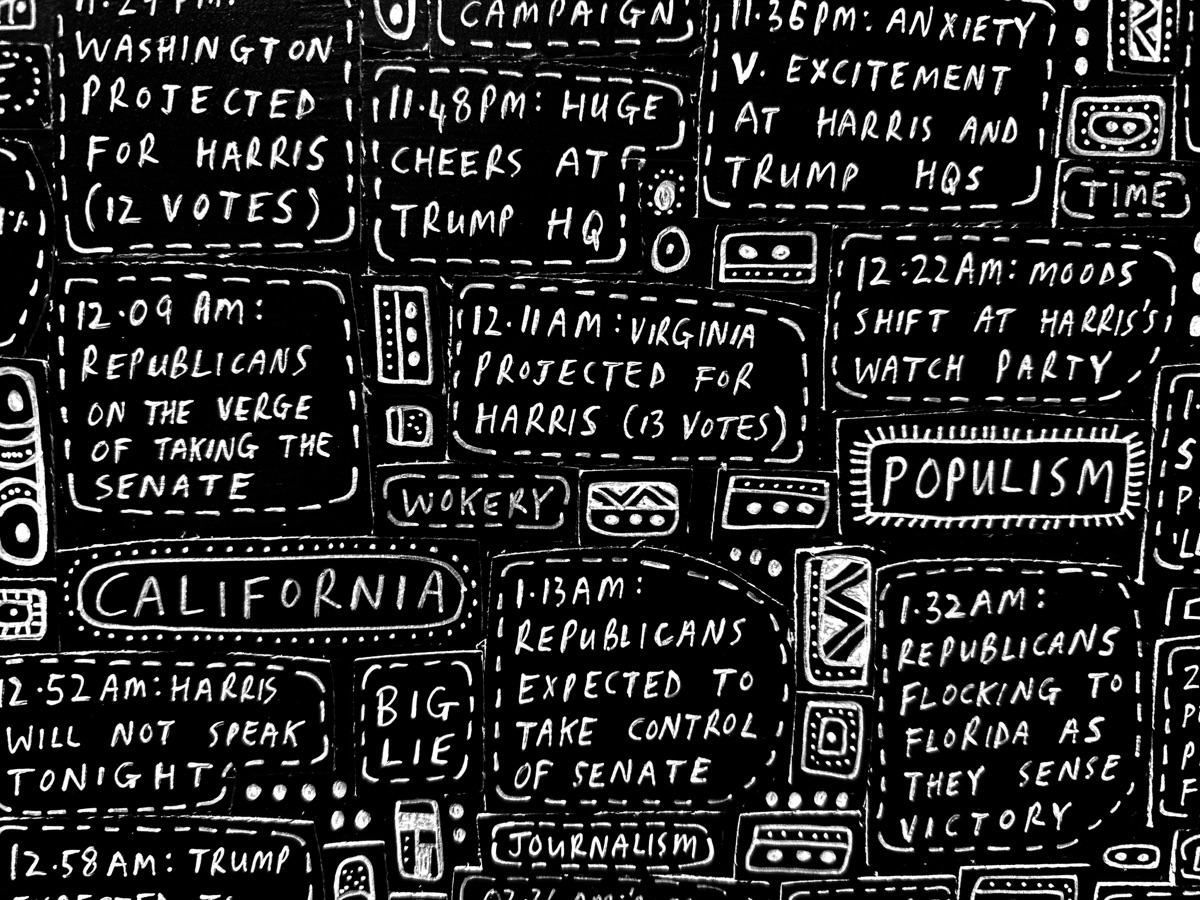 11.29 PM:
WASHINGTON
PROJECTED
FOR HARRIS
(12 VOTES)
CAMPAIGN
11.48PM: HUGE
CHEERS AT
TRUMP HQ
11.36PM: ANXIETY
V. EXCITEMENT
AT HARRIS AND
TRUMP HQS
TIME
1%
12.09 AM:
REPUBLICANS
ON THE VERGE
OF TAKING THE
SENATE
12.11AM: VIRGINIA
PROJECTED FOR
HARRIS (13 VOTES)
12.22AM: MOODS
SHIFT AT HARRIS'S
WATCH PARTY
WOKERY
POPULISM
CALIFORNIA
1.13AM:
REPUBLICANS
EXPECTED TO
TAKE CONTROL
OF SENATE
1.32AM:
REPUBLICANS
FLOCKING TO
FLORIDA AS
THEY SENSE
VICTORY
12.52AM: HARRIS
WILL NOT SPEAK
TONIGHT
BIG
LIE
JOURNALISM
12.58AM: TRUMP
EXPECTED TO